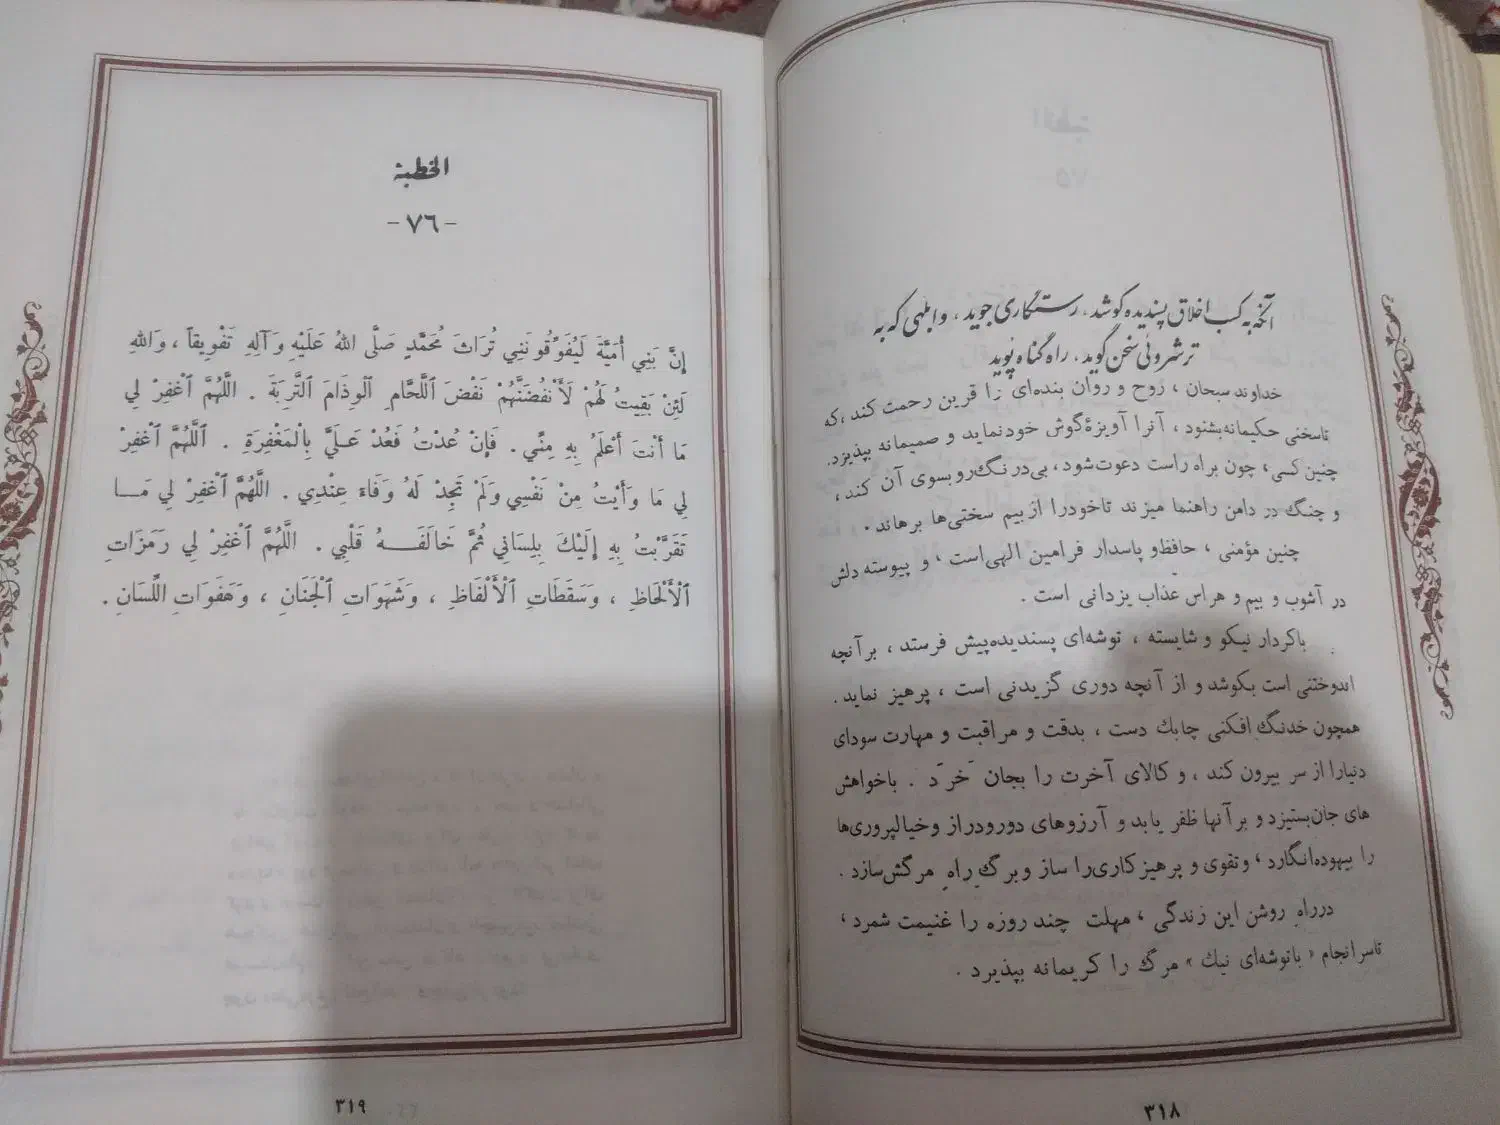 آنکه به کسب اخلاق پسندیده کوشد، رستگاری جوید، و ابلهی که به
ترشروئی سخن گوید، راه گناه پوید
خداوند سبحان ، روح و روان بنده‌ای را قرین رحمت کند ، که
تاسخنی حکیمانه بشنود ، آنرا آویزهٔ گوش خود نماید و صمیمانه بپذیرد.
چنین کسی ، چون براه راست دعوت شود ، بی‌درنگ رو بسوی آن کند ،
و چنگ در دامن راهنما میزند تا خود را از بیم سختی‌ها برهاند .
چنین مؤمنی ، حافظ و پاسدار فرامین الهی است ، و پیوسته دلش
در آشوب و بیم و هراس عذاب یزدانی است .
باکردار نیکو و شایسته ، توشه‌ای پسندیده پیش فرستد ، برآنچه
اندوختنی است بکوشد و از آنچه دوری گزیدنی است ، پرهیز نماید .
همچون خدنگ افکنی چابک دست ، بدقت و مراقبت و مهارت سودای
دنیا را از سر بیرون کند ، و کالای آخرت را بجان خرَد . باخواهش
های جان بستیزد و برآنها ظفر یابد و آرزوهای دورودراز و خیالپروری‌ها
را بیهوده انگارد ، و تقوی و پرهیز کاری را ساز و برگ راهِ مرگش سازد .
درراه روشن این زندگی ، مهلت چند روزه را غنیمت شمرد ،
تاسرانجام « باتوشه‌ای نیک » مرگ را کریمانه بپذیرد .
۳۱۸
الخطبة
-٧٦-
إِنَّ بَنِي أُمَيَّةَ لَيُفَوِّقُونَنِي تُرَاثَ مُحَمَّدٍ صَلَّى اللهُ عَلَيْهِ وَآلِهِ تَفْوِيقاً ، وَاللهِ
لَئِنْ بَقِيتُ لَهُمْ لَأَنْفُضَنَّهُمْ نَفْضَ ٱللَّحَّامِ ٱلْوِذَامَ ٱلتَّرِبَةَ . اللَّهُمَّ ٱغْفِرْ لِي
مَا أَنْتَ أَعْلَمُ بِهِ مِنِّي . فَإِنْ عُدْتُ فَعُدْ عَلَيَّ بِالْمَغْفِرَةِ . ٱللَّهُمَّ ٱغْفِرْ
لِي مَا وَأَيْتُ مِنْ نَفْسِي وَلَمْ تَجِدْ لَهُ وَفَاءً عِنْدِي . اللَّهُمَّ ٱغْفِرْ لِي مَـا
تَقَرَّبْتُ بِهِ إِلَيْكَ بِلِسَانِي ثُمَّ خَالَفَـهُ قَلْبِي . اللَّهُمَّ ٱغْفِرْ لِي رَمَزَاتِ
ٱلْأَلْحَاظِ ، وَسَقَطَاتِ ٱلْأَلْفَاظِ ، وَشَهَوَاتِ ٱلْجَنَانِ ، وَهَفَوَاتِ اللِّسَانِ .
٣١٩